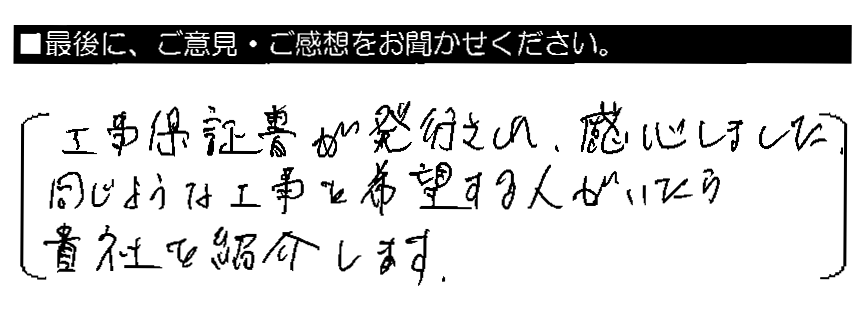 ■最後に、ご意見・ご感想をお聞かせください。
工事保証書が発行され、感心しました。
同じような工事を希望する人がいたら
貴社を紹介します。